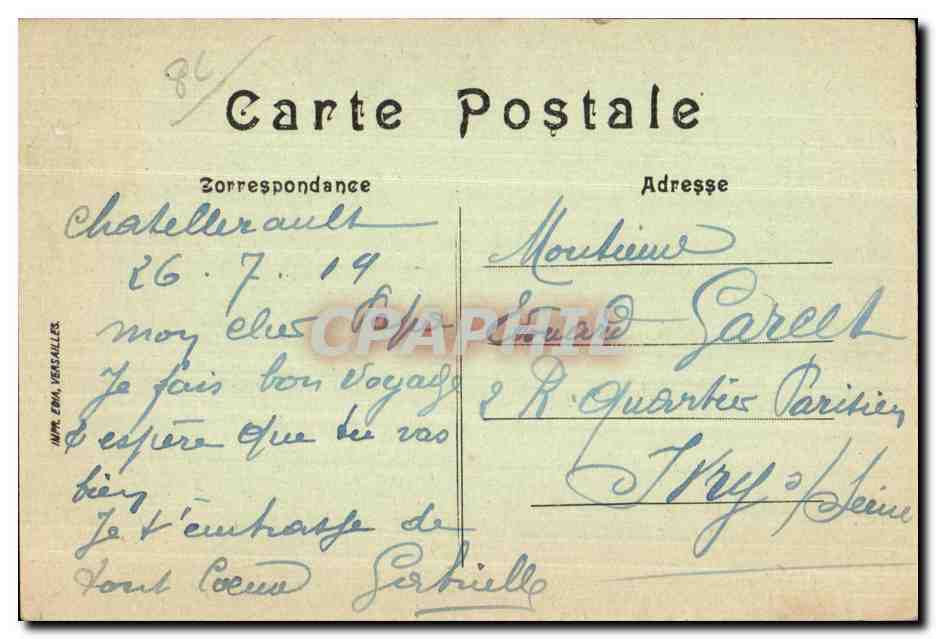 86
Carte Postale
Correspondance
Adresse
Chatellerault
26.7.19
mon cher Papa
Je fais bon voyage
& espère que tu vas
bien
Je t'embrasse de
tout Coeur Gabrielle
Monsieur
Edouard Garcet
2 R. Quartier Parisien
Ivry s/ Seine
IMPR. EDIA, VERSAILLES.
CPAPHIL